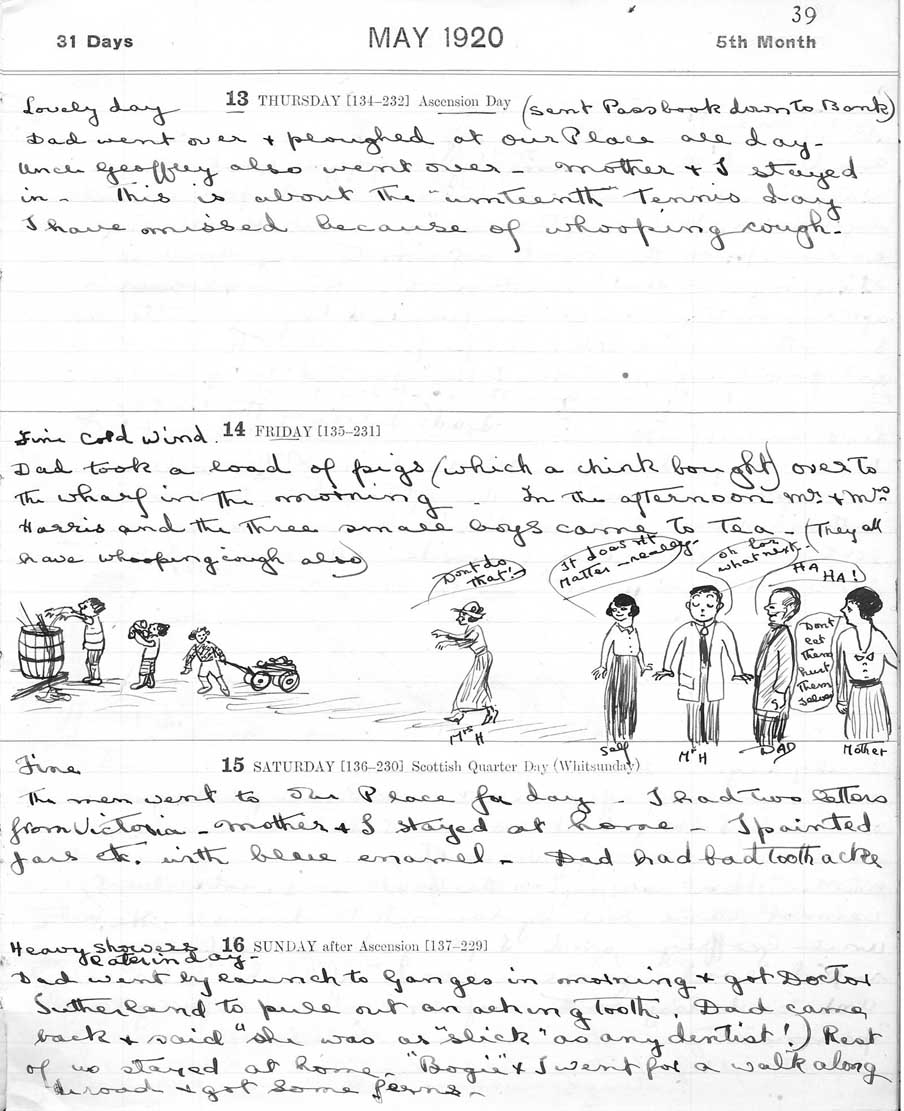 39
31 Days MAY 1920 5th Month
Lovely day 13 THURSDAY [134–232] Ascension Day (Sent Passbook down to Bank)
Dad went over + ploughed at our Place all day -
Uncle Geoffrey also went over - Mother + I stayed
in - This is about the "umteenth" Tennis day
I have missed because of whooping cough -
Fine Cold Wind. 14 FRIDAY [135–231]
Dad took a load of pigs (which a chink bought) over to
the wharf in the morning. In the afternoon Mr. + Mrs
Harris and the three small boys came to Tea - (They all
have whooping cough also)
Dont do
that!
It does n't
matter - really -
Oh Lor
what next -
HA
HA!
Dont
eat
them
hurt
them
selves
Mrs H
Self
Mr H
DAD
Mother
Fine 15 SATURDAY [136–230] Scottish Quarter Day (Whitsunday)
The men went to Our Place for day - I had two letters
from Victoria - Mother + I stayed at home - I painted
jars etc. with blue enamel - Dad had bad toothache
Heavy Showers 16 SUNDAY after Ascension [137–229]
later in day -
Dad went by launch to Ganges in morning + got Doctor
Sutherland to pull out an aching tooth. Dad came
back + said "she was as "slick" as any dentist!) Rest
of us stayed at home - "Bogie" + I went for a walk along
road + got some ferns -